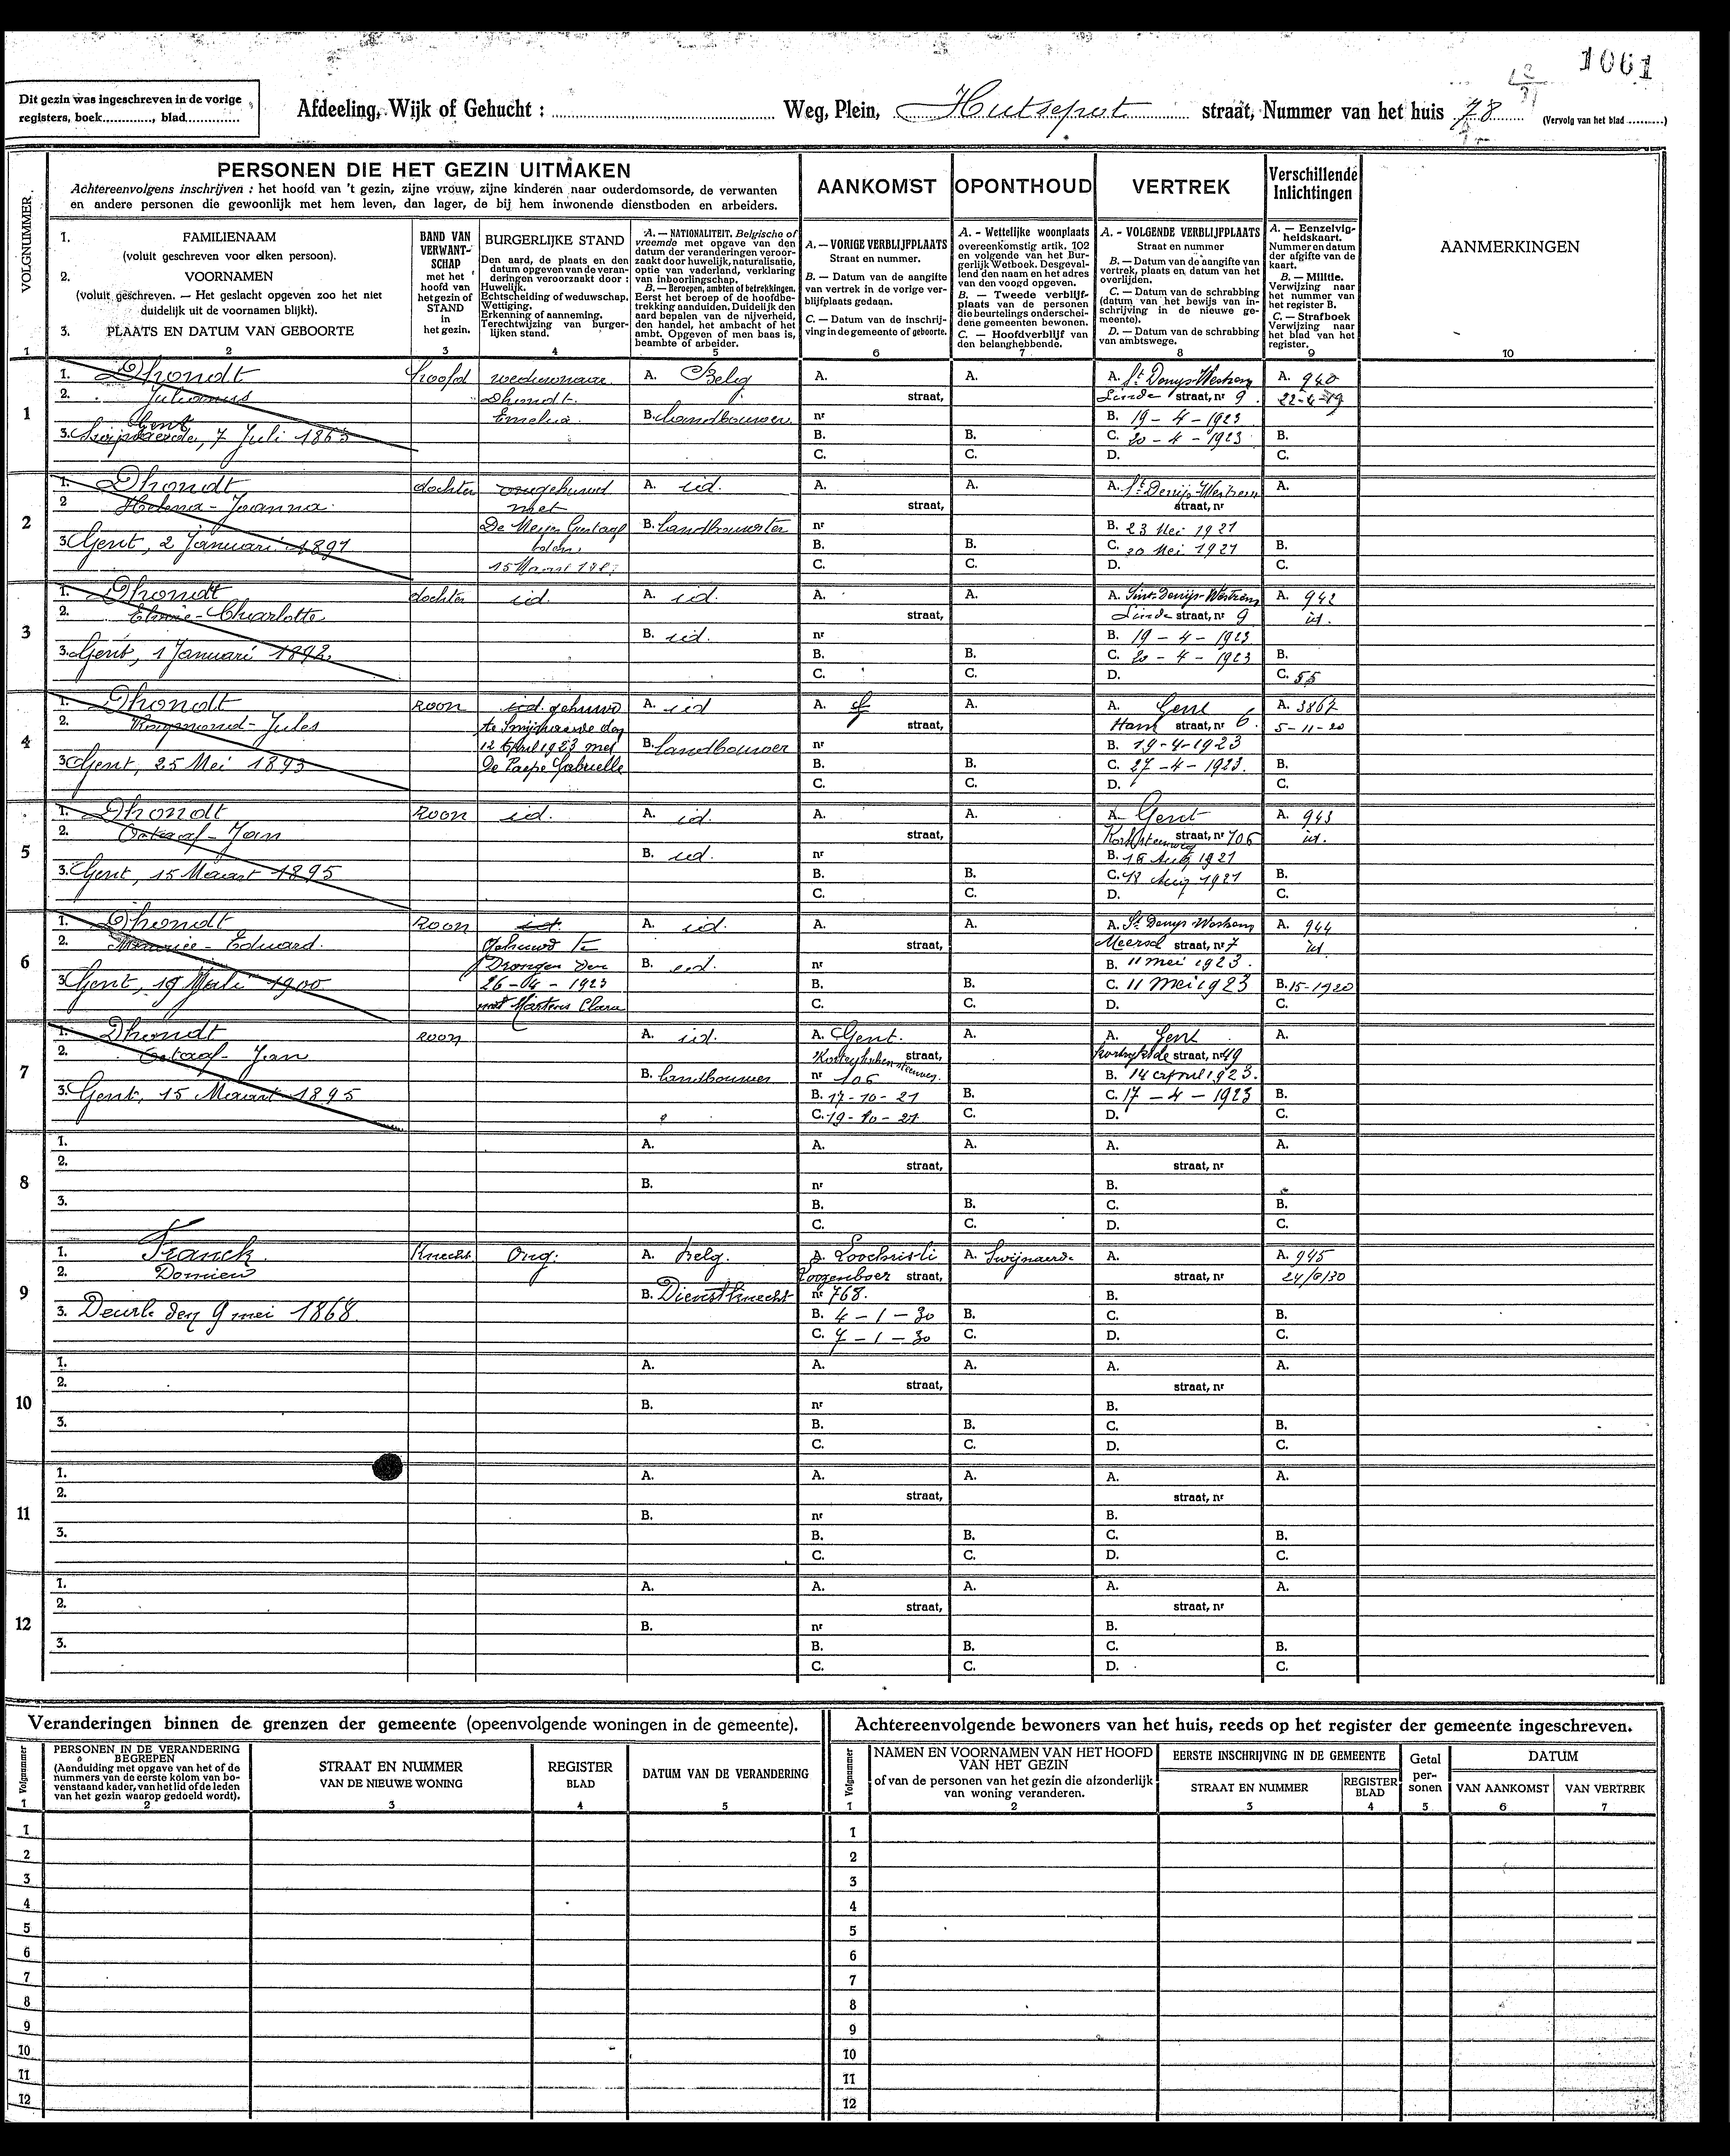 1061
Dit gezin was ingeschreven in de vorige
registers, boek............, blad..............
Afdeeling, Wijk of Gehucht :
Weg, Plein, Hutsepot straat, Nummer van het huis 78 (Vervolg van het blad ..........)
PERSONEN DIE HET GEZIN UITMAKEN
Achtereenvolgens inschrijven : het hoofd van 't gezin, zijne vrouw, zijne kinderen naar ouderdomsorde, de verwanten
en andere personen die gewoonlijk met hem leven, dan lager, de bij hem inwonende dienstboden en arbeiders.
AANKOMST
OPONTHOUD
VERTREK
Verschillende
Inlichtingen
AANMERKINGEN
VOLGNUMMER.
1. FAMILIENAAM
(voluit geschreven voor elken persoon).
2. VOORNAMEN
(voluit geschreven. — Het geslacht opgeven zoo het niet
duidelijk uit de voornamen blijkt).
3. PLAATS EN DATUM VAN GEBOORTE
BAND VAN
VERWANT-
SCHAP
met het
hoofd van
het gezin of
STAND
in
het gezin.
BURGERLIJKE STAND
Den aard, de plaats en den
datum opgeven van de veran-
deringen veroorzaakt door :
Huwelijk.
Echtscheiding of weduwschap.
Wettiging.
Erkenning of aanneming.
Terechtwijzing van burger-
lijken stand.
A. — NATIONALITEIT. Belgische of
vreemde met opgave van den
datum der veranderingen veroor-
zaakt door huwelijk, naturalisatie,
optie van vaderland, verklaring
van inboorlingschap.
B. — Beroepen, ambten of betrekkingen.
Eerst het beroep of de hoofdbe-
trekking aanduiden. Duidelijk den
aard bepalen van de nijverheid,
den handel, het ambacht of het
ambt. Opgeven of men baas is,
beambte of arbeider.
A. — VORIGE VERBLIJFPLAATS
Straat en nummer.
B. — Datum van de aangifte
van vertrek in de vorige ver-
blijfplaats gedaan.
C. — Datum van de inschrij-
ving in de gemeente of geboorte.
A. - Wettelijke woonplaats
overeenkomstig artik. 102
en volgende van het Bur-
gerlijk Wetboek. Desgeval-
lend den naam en het adres
van den voogd opgeven.
B. — Tweede verblijf-
plaats van de personen
die beurtelings onderschei-
dene gemeenten bewonen.
C. — Hoofdverblijf van
den belanghebbende.
A. - VOLGENDE VERBLIJFPLAATS
Straat en nummer
B. — Datum van de aangifte van
vertrek, plaats en datum van het
overlijden.
C. — Datum van de schrabbing
(datum van het bewijs van in-
schrijving in de nieuwe ge-
meente).
D. — Datum van de schrabbing
van ambtswege.
A. — Eenzelvig-
heidskaart.
Nummer en datum
der afgifte van de
kaart.
B. — Militie.
Verwijzing naar
het nummer van
het register B.
C. — Strafboek
Verwijzing naar
het blad van het
register.
1 2 3 4 5 6 7 8 9 10
1
1. Dhondt hoofd weduwnaar A. Belg A. A. A. St Denys-Westrem A. 940
2. Julianus Dhondt straat, Linde straat, nr 9 22-4-19
Emelia B. landbouwer nr B. 19 - 4 - 1923
Gent
3. Swijnaerde, 7 Juli 1863 B. B. C. 20 - 4 - 1923 B.
C. C. D. C.
2
1. Dhondt dochter ongehuwd A. id. A. A. A. St Denijs-Westrem A.
2 Helena - Joanna met straat, straat, nr
De Meyer Gustaaf B. landbouwster nr B. 23 Mei 1921
3. Gent, 2 Januari 1891 B. B. C. 20 Mei 1921 B.
15 Maart
C. C. D. C.
3
1. Dhondt dochter id. A. id. A. A. A. Sint-Denijs-Westrem A. 942
2. Charlotte straat, Linde straat, nr 9 id.
B. id. nr B. 19 - 4 - 1923
3. Gent, 1 Januari 1892 B. B. C. 20 - 4 - 1923 B.
C. C. D. C. 55
4
1. Dhondt zoon id. gehuwd A. id A. A. A. Gent A. 3867
2. Raymond - Jules te Swijnaerde den straat, Ham straat, nr 6. 5-11-20
12 April 1923 met B. landbouwer nr B. 19-4-1923
3. Gent, 25 Mei 1893 De Paepe Gabrielle B. B. C. 27 - 4 - 1923. B.
C. C. D. C.
5
1. Dhondt zoon id. A. id. A. A. A. Gent A. 943
2. Octaaf - Jan straat, straat, nr 106 id.
B. id. nr B. 16 Aug 1921
3. Gent, 15 Maart 1895 B. B. C. 18 Aug 1921 B.
C. C. D. C.
6
1. Dhondt zoon id. A. id. A. A. A. St Denys-Westrem A. 944
2. Maurice - Eduard. Gehuwd te straat, Meersch straat, nr 7 id
Drongen den B. id. nr B. 11 mei 1923.
3. Gent, 19 Juli 1900 26-04-1923 B. B. C. 11 Mei 1923 B. 15-1920
met Martens Clara C. C. D. C.
7
1. Dhondt zoon A. id. A. Gent. A. A. Gent A.
2. Octaaf - Jan straat, straat, nr 49
B. landbouwer nr 106 B. 14 april 1923.
3. Gent, 15 Maart 1895 B. 17-10-21 B. C. 17 - 4 - 1923 B.
C. 19-10-21 C. D. C.
8
1. A. A. A. A. A.
2. straat, straat, nr
B. nr B.
3. B. B. C. B.
C. C. D. C.
9
1. Franck. Knecht Ong. A. belg. A. Loochristi A. Swijnaerde A. A. 945
2. Domien straat, straat, nr 24/6/30
B. Dienstknecht nr 768. B.
3. Deurle den 9 mei 1868. B. 4 - 1 - 30 B. C. B.
C. 7 - 1 - 30 C. D. C.
10
1. A. A. A. A. A.
2. straat, straat, nr
B. nr B.
3. B. B. C. B.
C. C. D. C.
11
1. A. A. A. A. A.
2. straat, straat, nr
B. nr B.
3. B. B. C. B.
C. C. D. C.
12
1. A. A. A. A. A.
2. straat, straat, nr
B. nr B.
3. B. B. C. B.
C. C. D. C.
Veranderingen binnen de grenzen der gemeente (opeenvolgende woningen in de gemeente).
Volgnummer
PERSONEN IN DE VERANDERING
BEGREPEN
(Aanduiding met opgave van het of de
nummers van de eerste kolom van bo-
venstaand kader, van het lid of de leden
van het gezin waarop gedoeld wordt).
STRAAT EN NUMMER
VAN DE NIEUWE WONING
REGISTER
BLAD
DATUM VAN DE VERANDERING
1 2 3 4 5
1
2
3
4
5
6
7
8
9
10
11
12
Achtereenvolgende bewoners van het huis, reeds op het register der gemeente ingeschreven.
Volgnummer
NAMEN EN VOORNAMEN VAN HET HOOFD
VAN HET GEZIN
of van de personen van het gezin die afzonderlijk
van woning veranderen.
EERSTE INSCHRIJVING IN DE GEMEENTE
STRAAT EN NUMMER
REGISTER
BLAD
Getal
per-
sonen
DATUM
VAN AANKOMST
VAN VERTREK
1 2 3 4 5 6 7
1
2
3
4
5
6
7
8
9
10
11
12